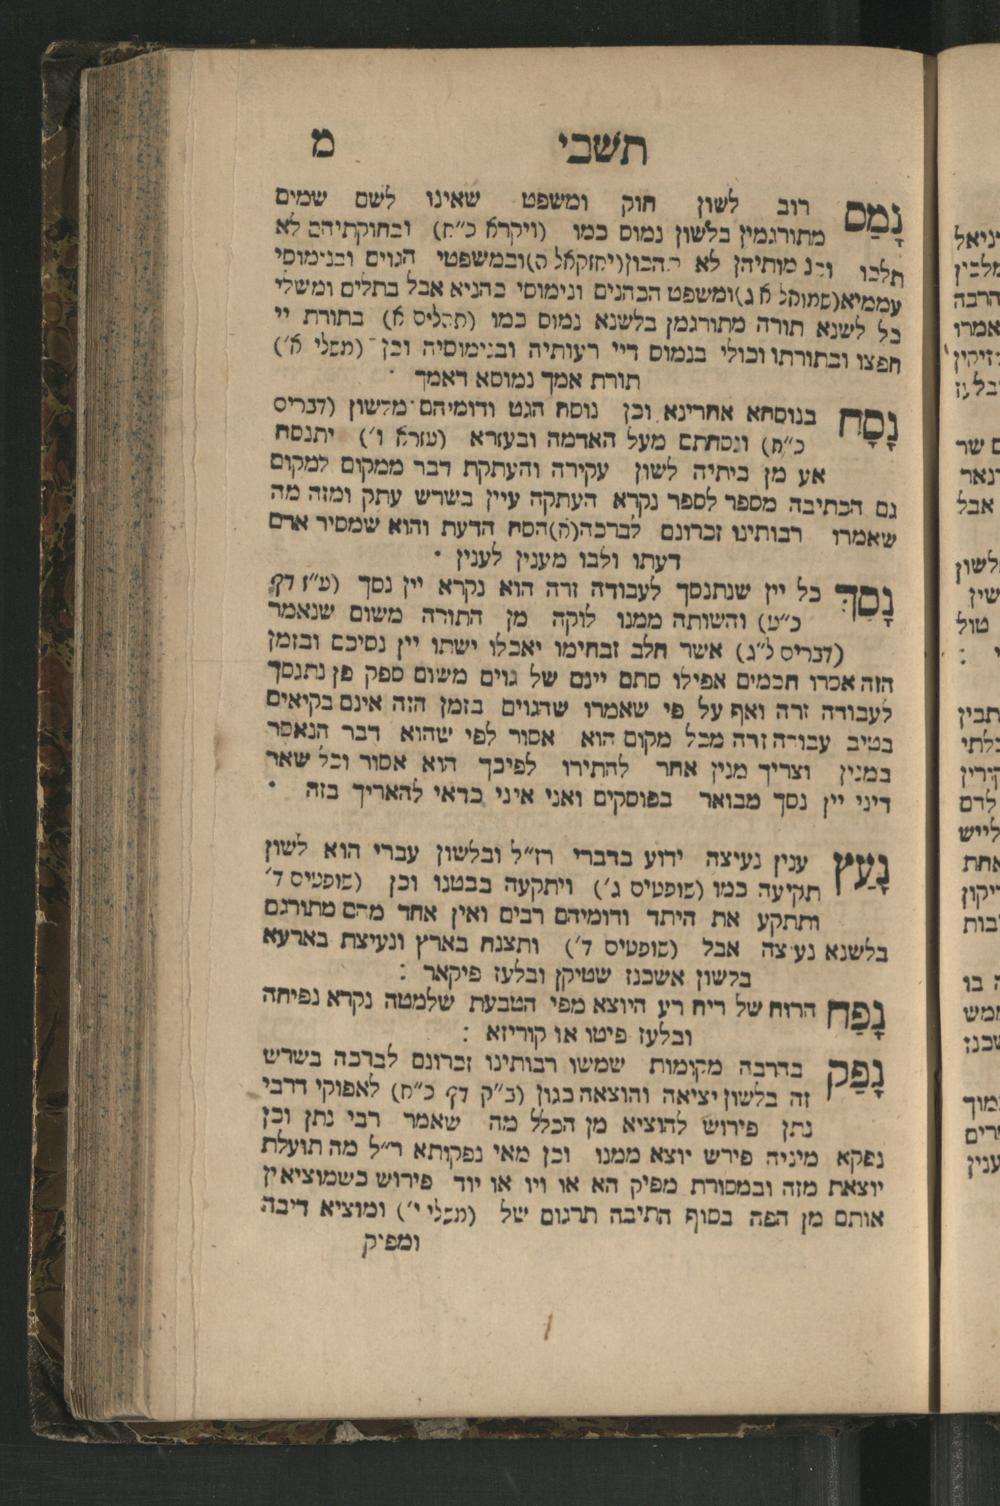 תשבי מ
נָמַס רוב לשון חוק ומשפט שאינו לשם שמים
מתורגמין בלשון נמוס כמו (ויקרא כ״ח) ובחוקתיהם לא
תלכו מותיהן לא (יחזקאל ה) ובמשפטי הגוים ובנימוסי
עממיא (שמואל א ג) ומשפט הכהנים ונימוסי כהניא אבל בתלים ומשלי
כל לשנא תורה מתורגמן בלשנא נמוס כמו (תהלים א) בתורת יי
חפצו ובתורתו וכולי בנמוס דיי רעותיה ובנימוסיה וכן (משלי א׳)
תורת אמך נמוסא דאמך
נָסַח בנוסחא אחרינא וכן נוסח הגט ודומיהם מלשון (דברים
כ״ח) ונסחתם מעל האדמה ובעזרא (עזרא ו׳) יתנסח
אע מן ביתיה לשון עקירה והעתקת דבר ממקום למקום
גם הכתיבה מספר לספר נקרא העתקה עיין בשרש עתק ומזה מה
שאמרו רבותינו זכרונם לברכה (א) הסח הדעת והוא שמסיר אדם
דעתו ולבו מענין לענין
נָסַךְ כל יין שנתנסך לעבודה זרה הוא נקרא יין נסך (ע״ז דף
כ״ט) והשותה ממנו לוקה מן התורה משום שנאמר
(דברים ל״ב) אשר חלב זבחימו יאכלו ישתו יין נסיכם ובזמן
הזה אסרו חכמים אפילו סתם יינם של גוים משום ספק פן נתנסך
לעבודה זרה ואף על פי שאמרו שהגוים בזמן הזה אינם בקיאים
בטיב עבודה זרה מכל מקום הוא אסור לפי שהוא דבר הנאסר
במנין וצריך מנין אחר להתירו לפיכך הוא אסור וכל שאר
דיני יין נסך מבואר בפוסקים ואני איני כדאי להאריך בזה
נָעַץ ענין נעיצה ידוע בדברי רז״ל ובלשון עברי הוא לשון
תקיעה כמו (שופטים ג׳) ויתקעה בבטנו וכן (שופטים ד׳
ותתקע את היתד ודומיהם רבים ואין אחד מהם מתורגם
בלשנא נעיצה אבל (שופטים ד׳) ותצנח בארץ ונעיצת בארעא
בלשון אשכנז שטיקן ובלעז פיקאר :
נָפַח הרוח של ריח רע היוצא מפי הטבעת שלמטה נקרא נפיחה
ובלעז פיטו או קוריזא :
נָפַק בהרבה מקומות שמשו רבותינו זכרונם לברכה בשרש
זה בלשון יציאה והוצאה כגון (ב״ק דף כ״ח) לאפוקי דרבי
נתן פירוש להוציא מן הכלל מה שאמר רבי נתן וכן
נפקא מיניה פירש יוצא ממנו וכן מאי נפקותא ר״ל מה תועלת
יוצאת מזה ובמסורת מפיק הא או ויו או יוד פירוש כשמוציאין
אותם מן הפה בסוף התיבה תרגום של (משלי י׳) ומוציא דיבה
ומפיק